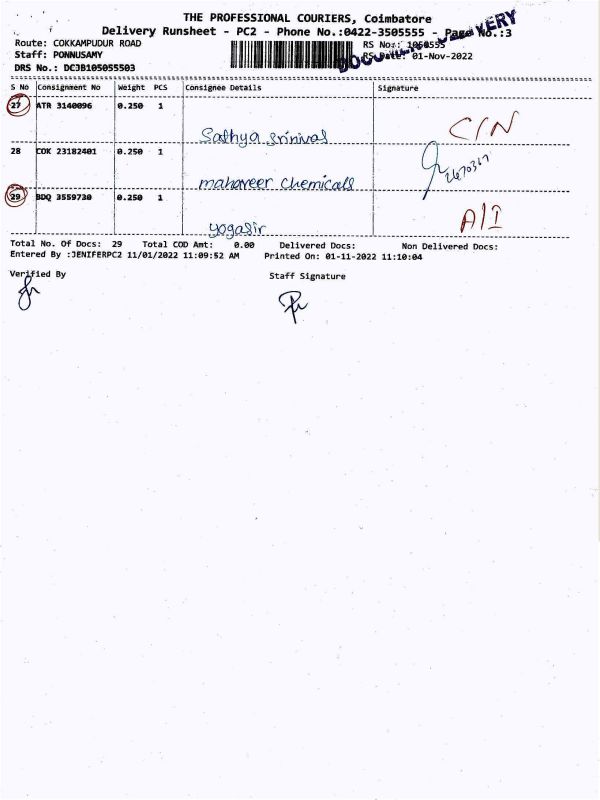 THE PROFESSIONAL COURIERS, Coimbatore
Delivery Runsheet - PC2 - Phone No.:0422-3505555 - Page No.:3
DOCUMENT DELIVERY
Route: COKKAMPUDUR ROAD RS No.: 1050555
Staff: PONNUSAMY RS Date: 01-Nov-2022
DRS No.: DCJB105055503
S No Consignment No Weight PCS Consignee Details Signature
27 ATR 3140096 0.250 1
Sathya Srinivas C/N
28 COK 23182401 0.250 1
mahaveer chemicals
29 BDQ 3559730 0.250 1
yogasir A/I
Total No. Of Docs: 29 Total COD Amt: 0.00 Delivered Docs: Non Delivered Docs:
Entered By :JENIFERPC2 11/01/2022 11:09:52 AM Printed On: 01-11-2022 11:10:04
Verified By Staff Signature